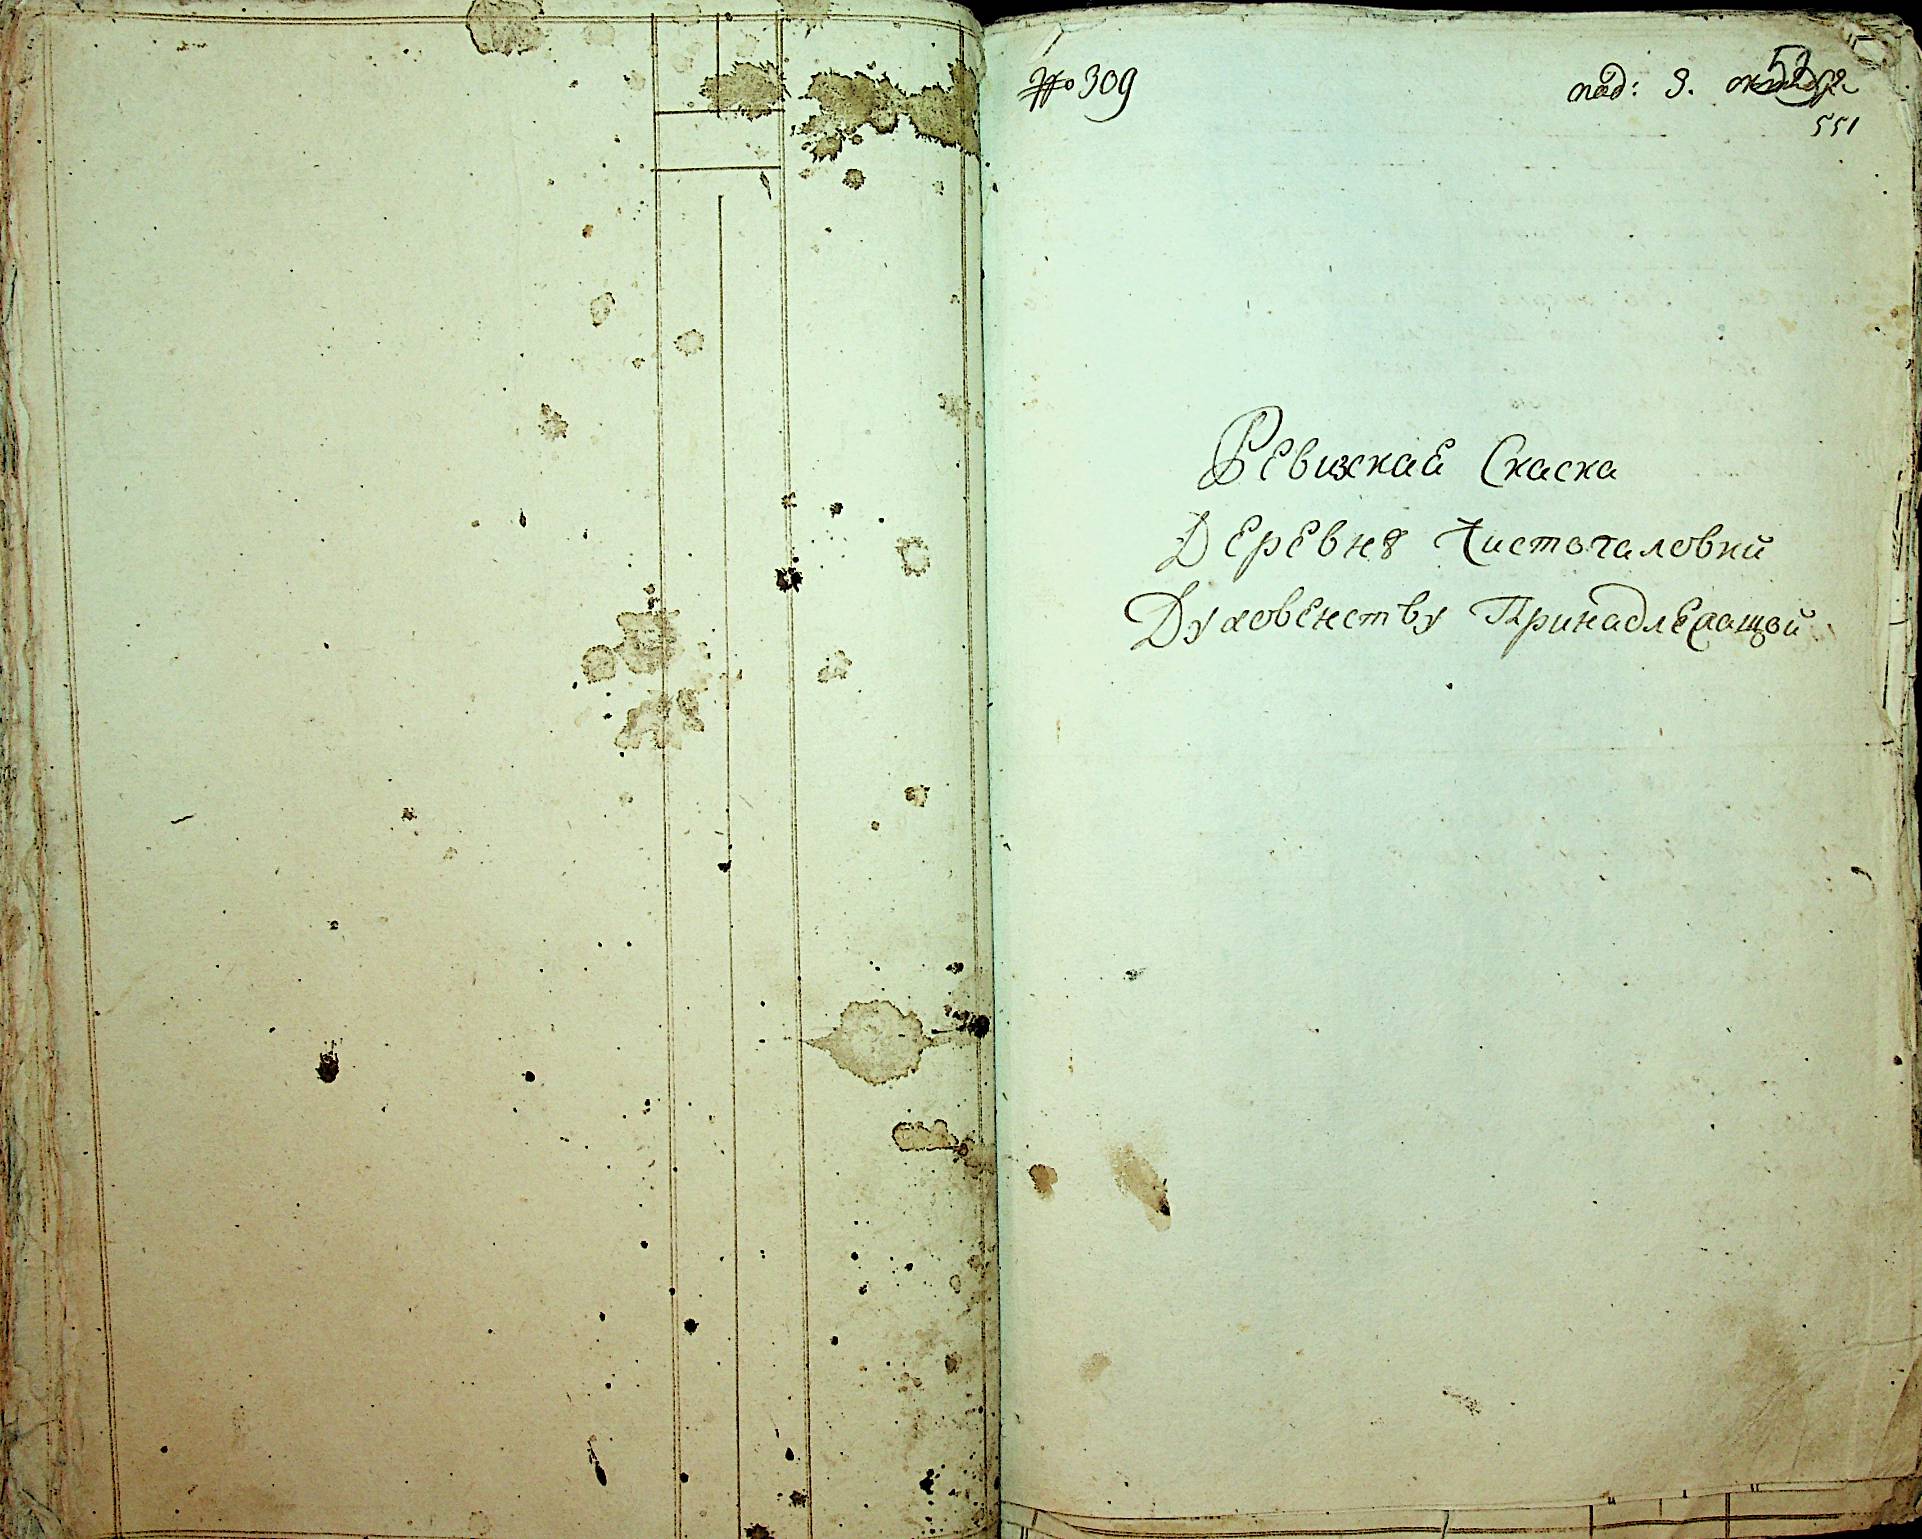 № 309
под: 3. октября
551
Ревижкай Скаска
Деревня Чистогаловки
Духовенству Принадлежащой